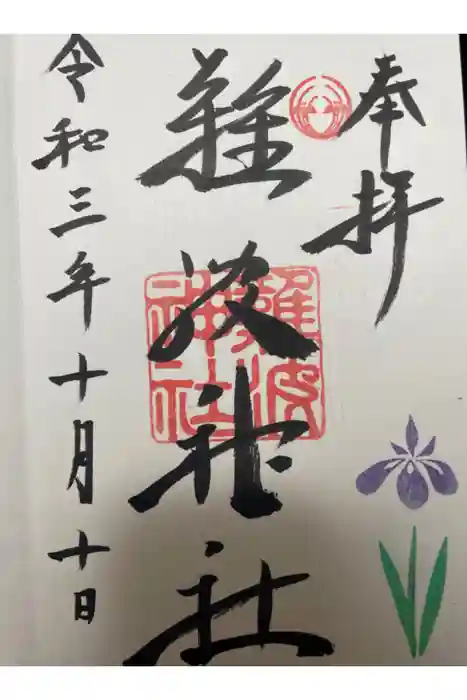 奉拝
難波神社
難波
神社
令和三年十月十日